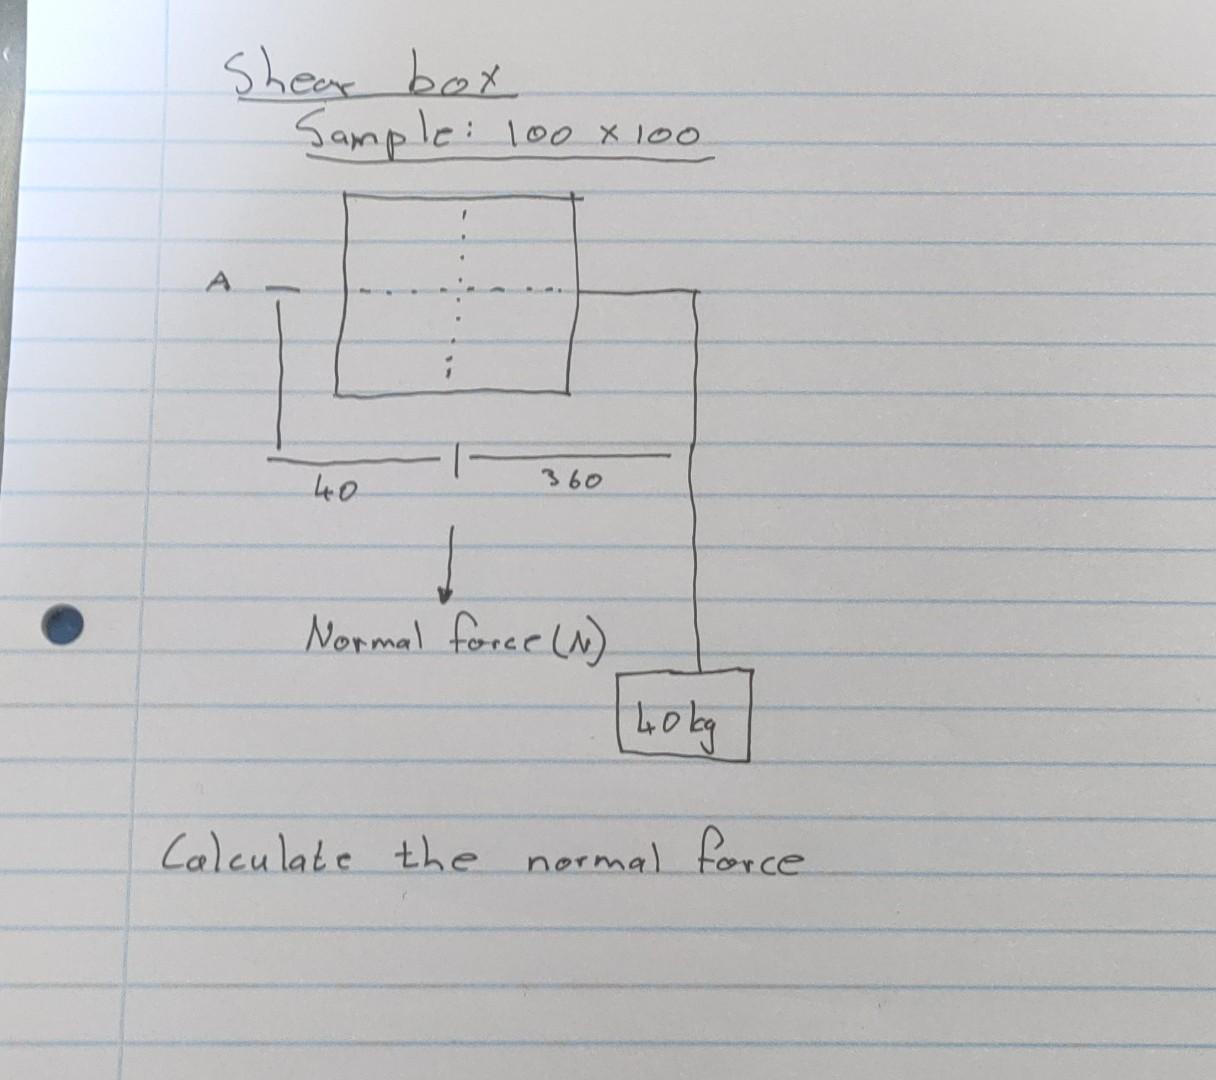 Shear box
Sample: 100 x 100
A
40
360
Normal force (N)
40 kg
Calculate the normal force